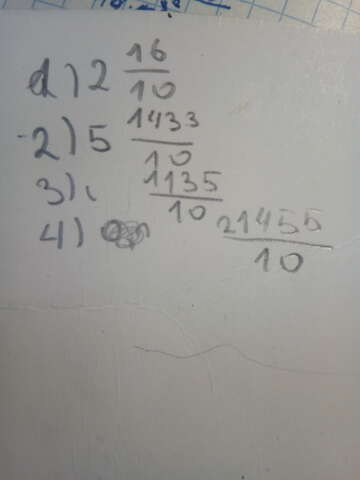 1) 2 16/10
2) 5 1433/10
3) 1135/10
4) 21455/10